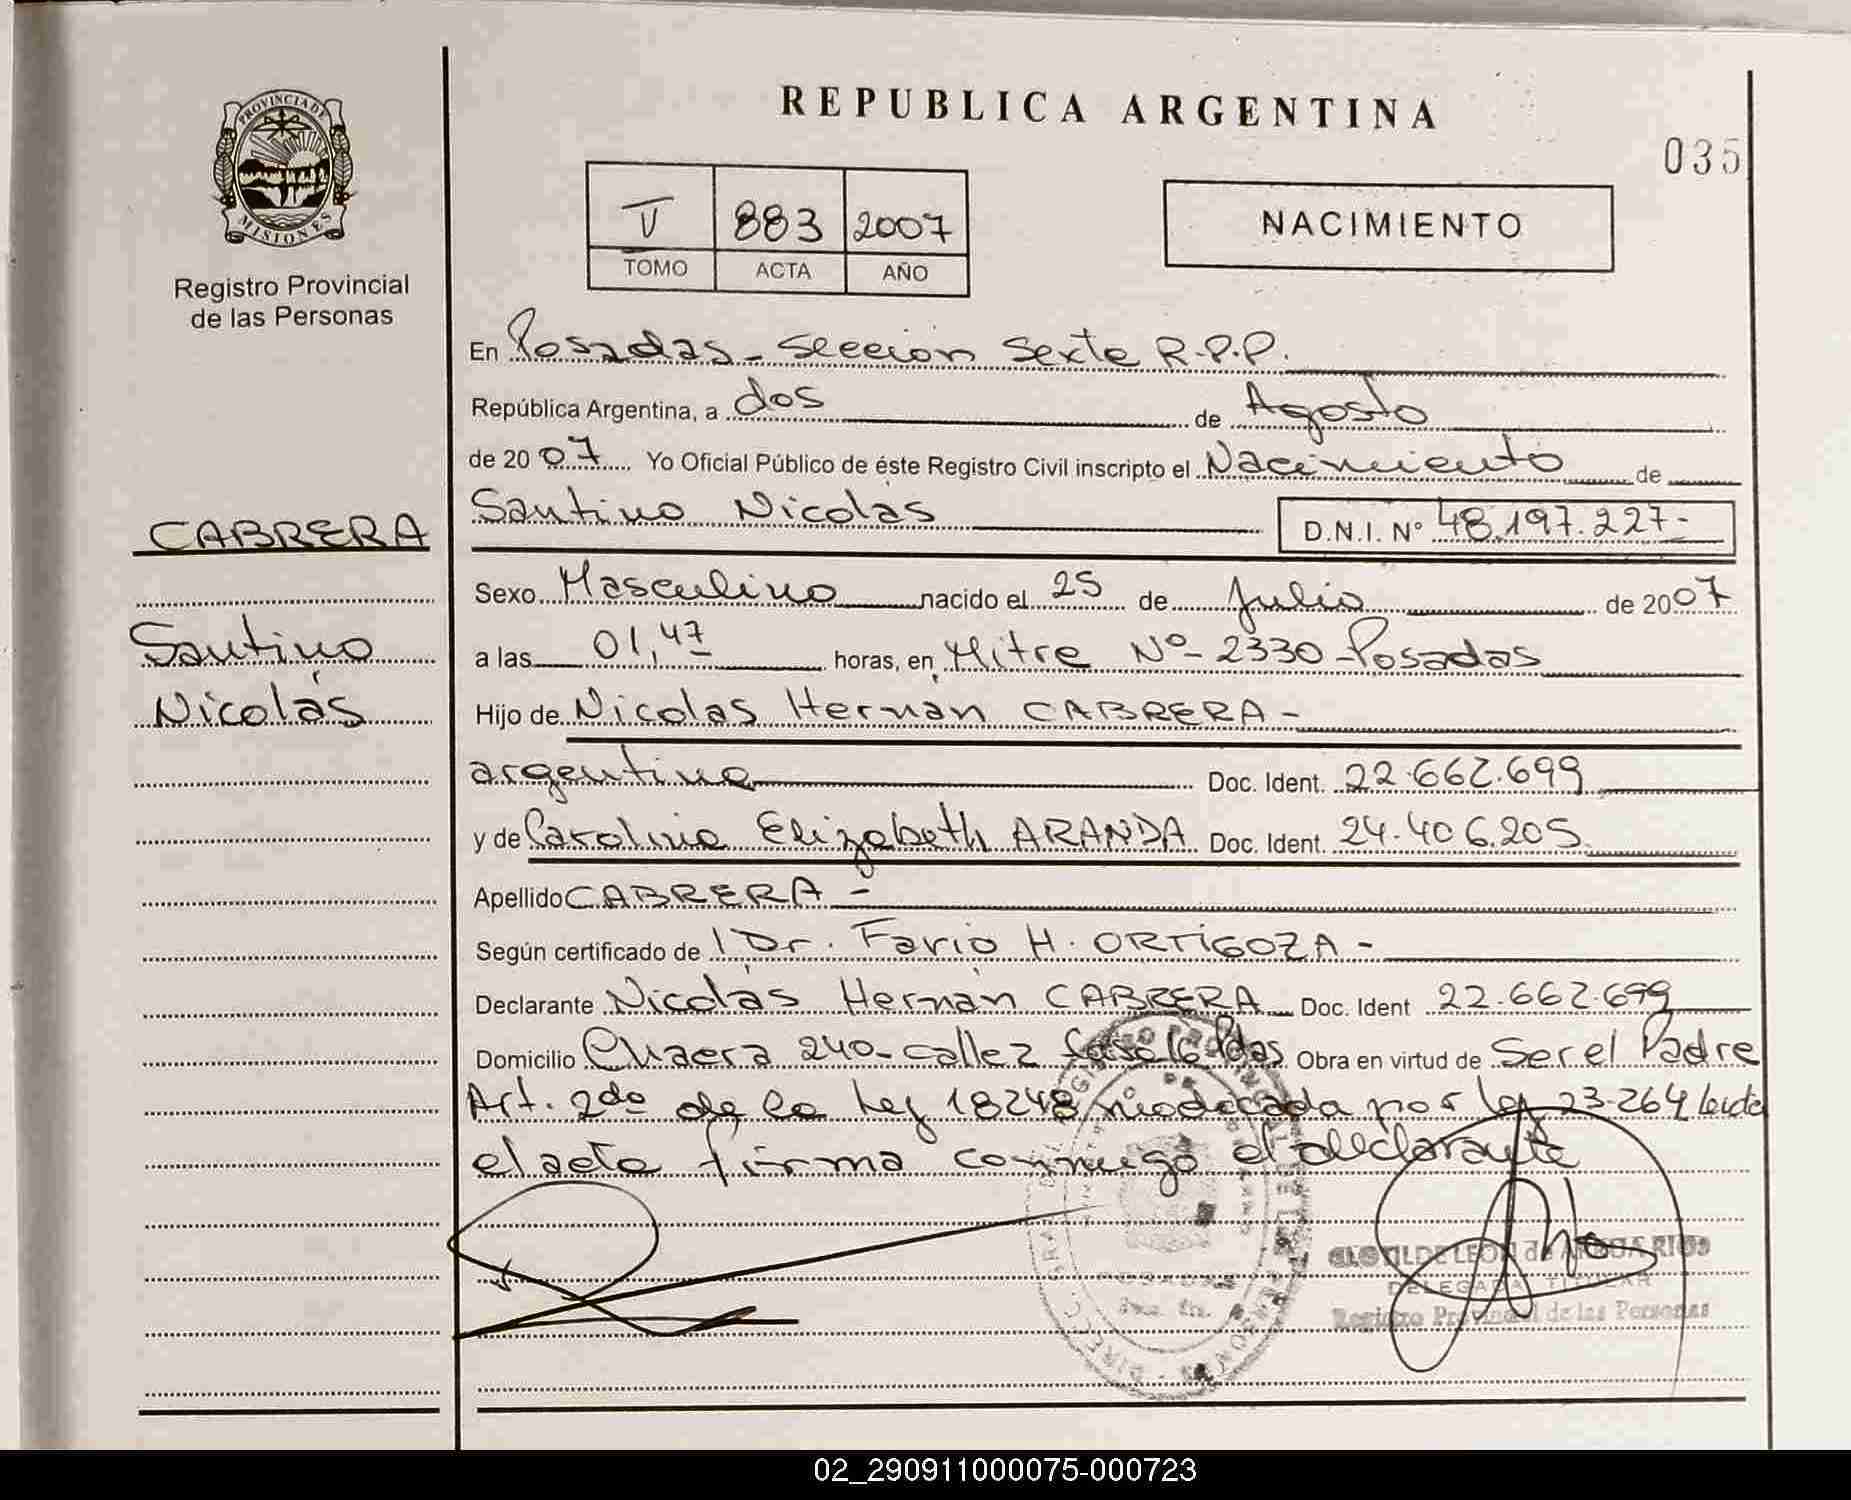 REPUBLICA ARGENTINA
035
PROVINCIA DE MISIONES
Registro Provincial
de las Personas
V 883 2007
TOMO ACTA AÑO
NACIMIENTO
En Posadas - Seccion Sexta R.P.P.
República Argentina, a dos de Agosto
de 2007 Yo Oficial Público de éste Registro Civil inscripto el Nacimiento de
Santino Nicolas D.N.I. Nº 48.197.227-
CABRERA
Santino
Nicolás
Sexo Masculino nacido el 25 de Julio de 2007
a las 01,47 horas, en Mitre Nº- 2330 - Posadas
Hijo de Nicolas Hernán CABRERA -
argentino Doc. Ident. 22.662.699
y de Carolina Elizabeth ARANDA Doc. Ident. 24.406.205
Apellido CABRERA -
Según certificado de l Dr. Favio H. ORTIGOZA -
Declarante Nicolás Hernán CABRERA Doc. Ident 22.662.699
Domicilio 240- calle 2 Pdas Obra en virtud de Ser el Padre
Art. 2do de la Ley 18248 modecada por ley 23.264 leida
el acta firma conmigo el declarante
CLOTILDE LEON de RIOS
DELEGADA TITULAR
Registro Provincial de las Personas
02_290911000075-000723